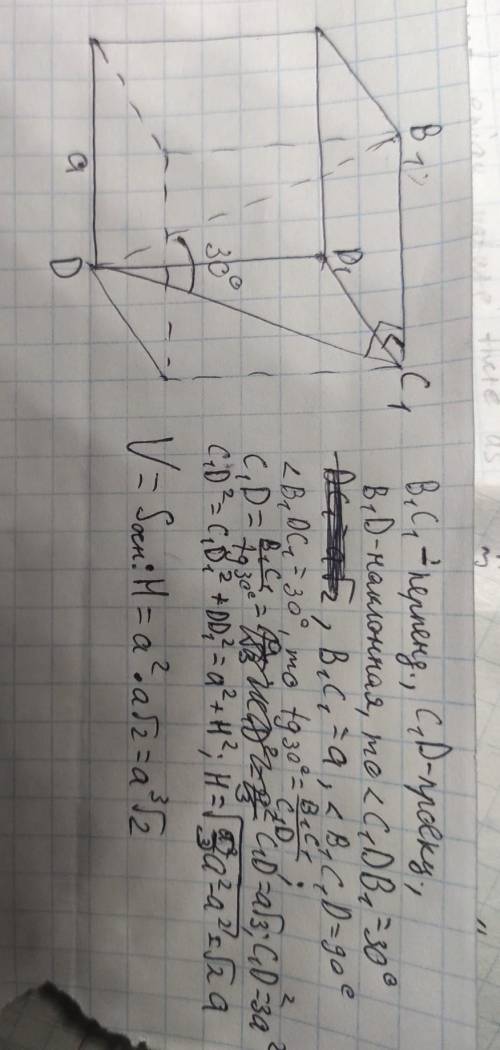 B₁
C₁
D₁
30°
a
D
B₁C₁ - перпенд., C₁D - проекц.,
B₁D - наклонная, то < C₁DB₁ = 30°
B₁C₁ = a, < B₁C₁D = 90°
< B₁DC₁ = 30°, то tg30° = B₁C₁/C₁D;
C₁D = B₁C₁/tg30° = C₁D = a√3; C₁D² = 3a²
C₁D² = C₁D₁² + DD₁² = a² + H²; H = √3a² - a² = √2 a
V = Sосн. · H = a² · a√2 = a³√2